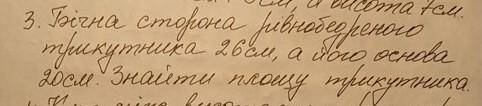 см, а висота 7см.
3. Бічна сторона рівнобедреного
трикутника 26см, а його основа
20см. Знайти площу трикутника.